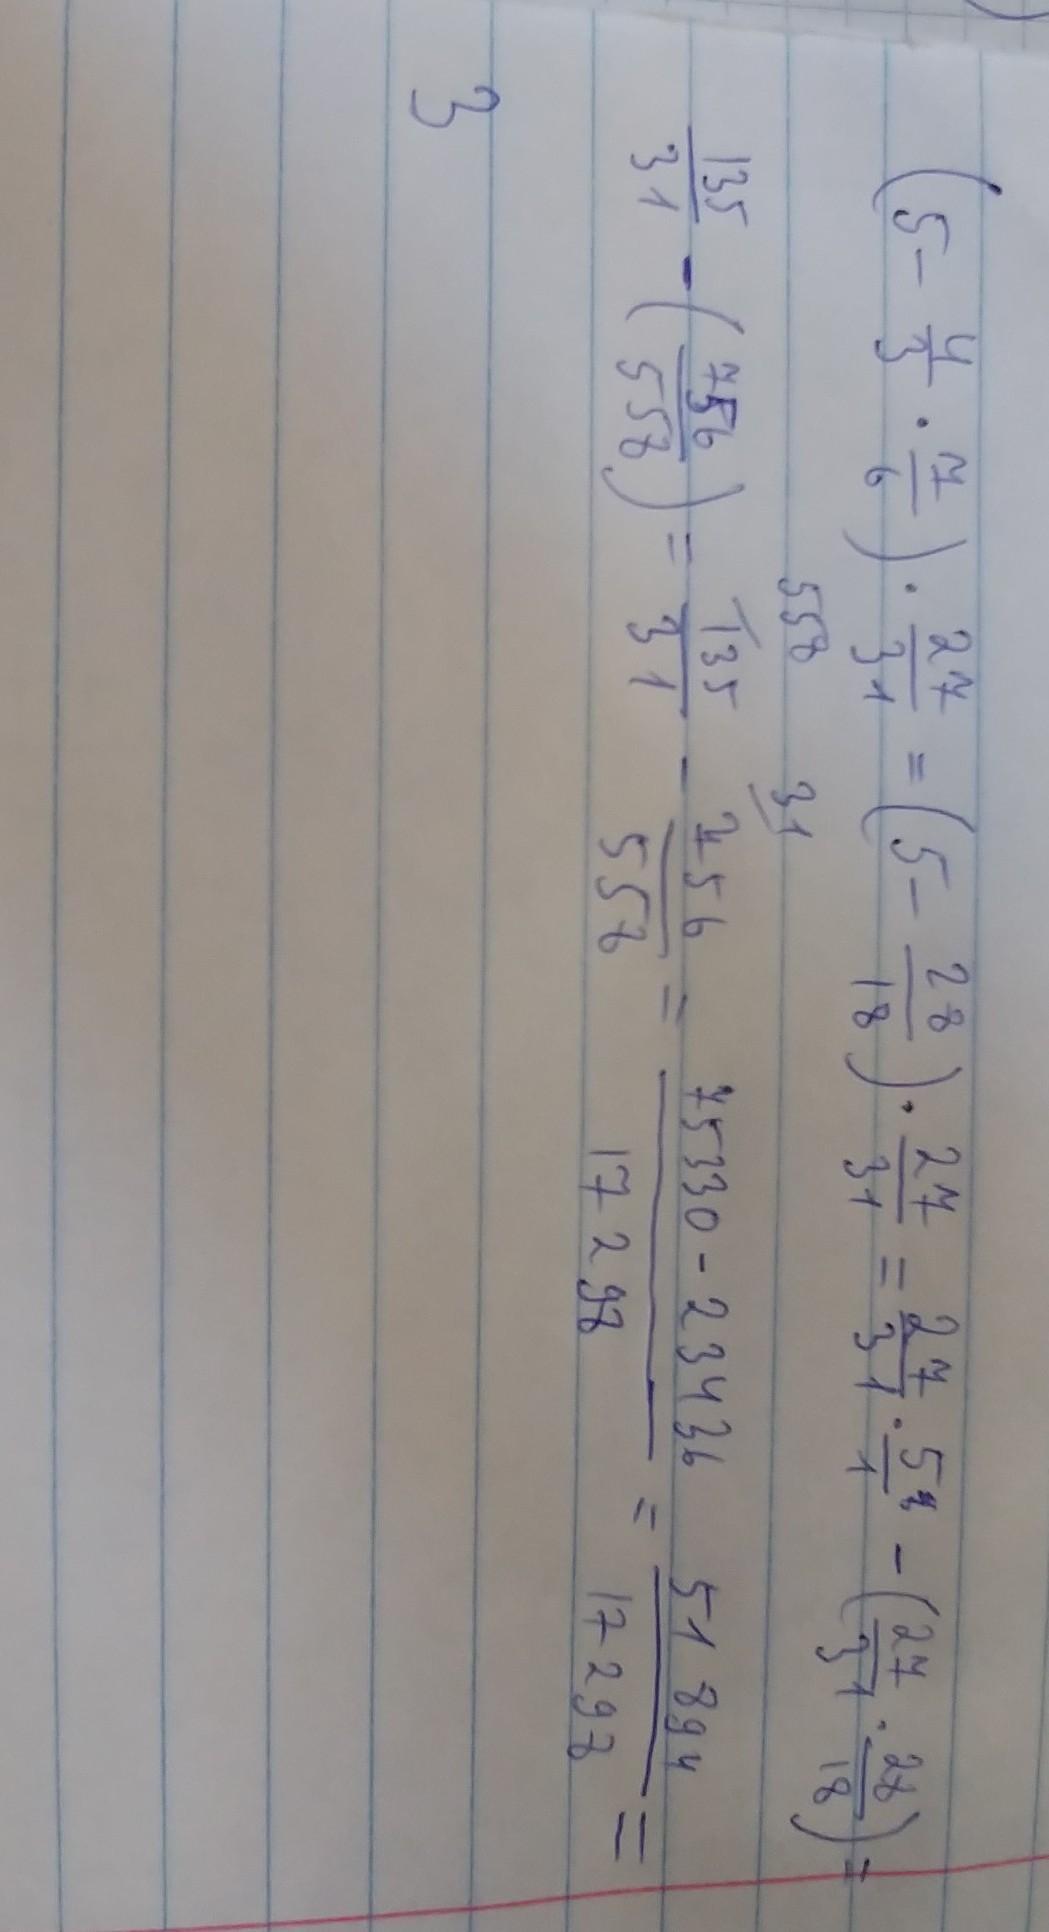 (5 - 4/3 · 7/6) · 27/31 = (5 - 28/18) · 27/31 = 27/31 · 5/1 - (27/31 · 28/18) =
558 31
135/31 - (756/558) = 135/31 - 756/558 = 75330 - 23436 / 17298 = 51894/17298 =
3